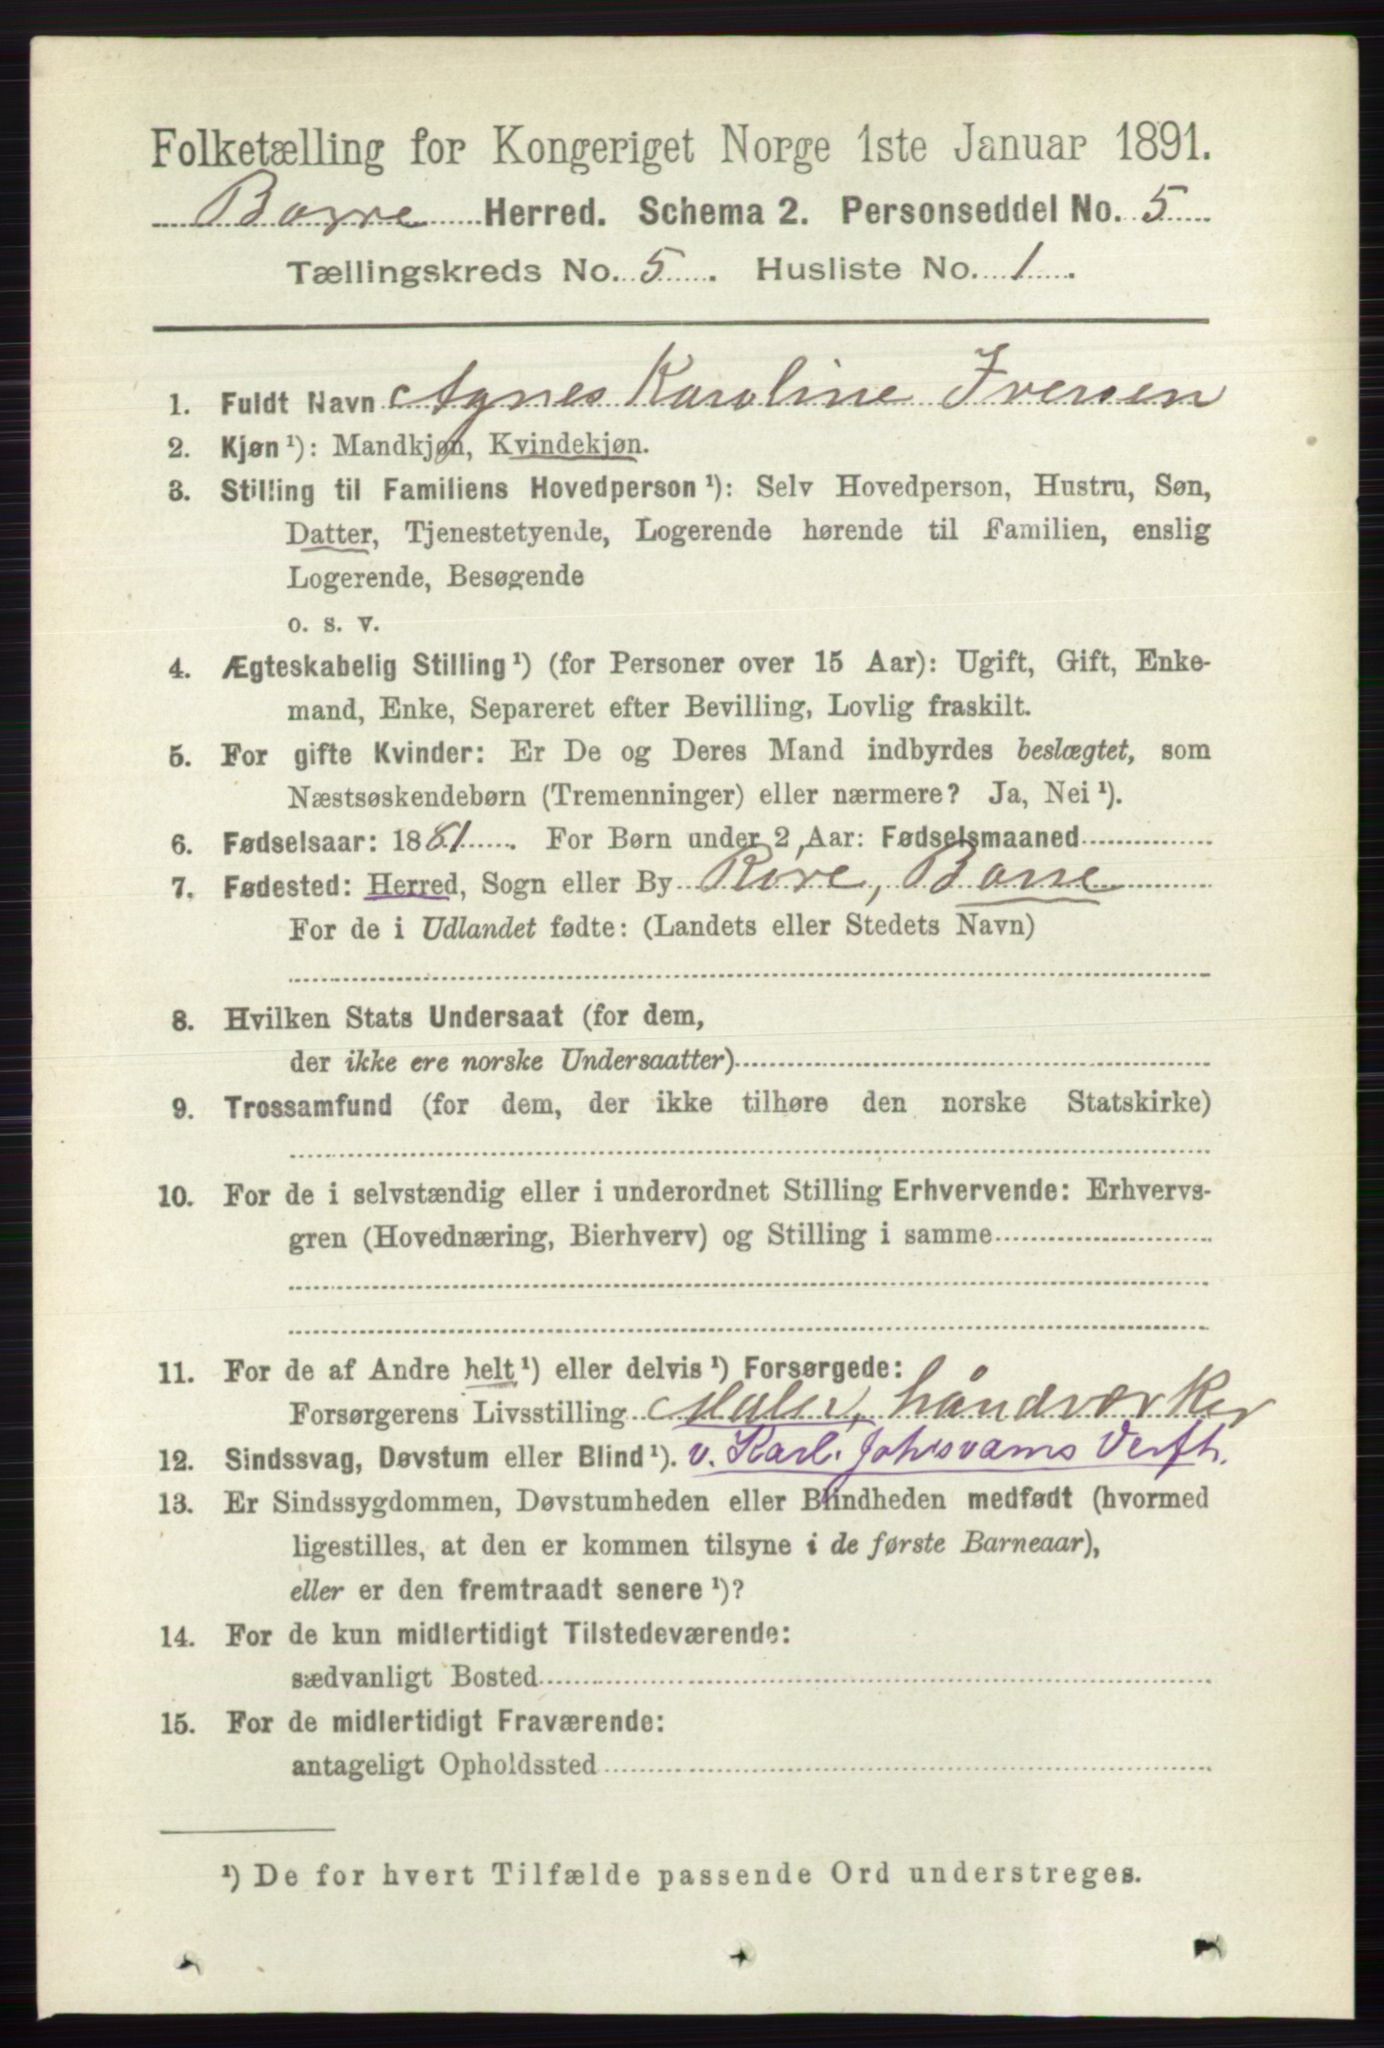 Folketælling for Kongeriget Norge 1ste Januar 1891.
Borre Herred. Schema 2. Personseddel No. 5
Tællingskreds No. 5. Husliste No. 1.
1. Fuldt Navn Agnes Karoline Iversen
2. Kjøn ¹): Mandkjøn, Kvindekjøn.
3. Stilling til Familiens Hovedperson ¹): Selv Hovedperson, Hustru, Søn,
Datter, Tjenestetyende, Logerende hørende til Familien, enslig
Logerende, Besøgende
o. s. v.
4. Ægteskabelig Stilling ¹) (for Personer over 15 Aar): Ugift, Gift, Enke-
mand, Enke, Separeret efter Bevilling, Lovlig fraskilt.
5. For gifte Kvinder: Er De og Deres Mand indbyrdes beslægtet, som
Næstsøskendebørn (Tremenninger) eller nærmere? Ja, Nei ¹).
6. Fødselsaar: 1881. For Børn under 2 Aar: Fødselsmaaned
7. Fødested: Herred, Sogn eller By Røre, Borre
For de i Udlandet fødte: (Landets eller Stedets Navn)
8. Hvilken Stats Undersaat (for dem,
der ikke ere norske Undersaatter)
9. Trossamfund (for dem, der ikke tilhøre den norske Statskirke)
10. For de i selvstændig eller i underordnet Stilling Erhvervende: Erhvervs-
gren (Hovednæring, Bierhverv) og Stilling i samme
11. For de af Andre helt ¹) eller delvis ¹) Forsørgede:
Forsørgerens Livsstilling Maler, håndværker
12. Sindssvag, Døvstum eller Blind ¹). v. Karl. Johsværns Verft.
13. Er Sindssygdommen, Døvstumheden eller Blindheden medfødt (hvormed
ligestilles, at den er kommen tilsyne i de første Barneaar),
eller er den fremtraadt senere ¹)?
14. For de kun midlertidigt Tilstedeværende:
sædvanligt Bosted
15. For de midlertidigt Fraværende:
antageligt Opholdssted
¹) De for hvert Tilfælde passende Ord understreges.